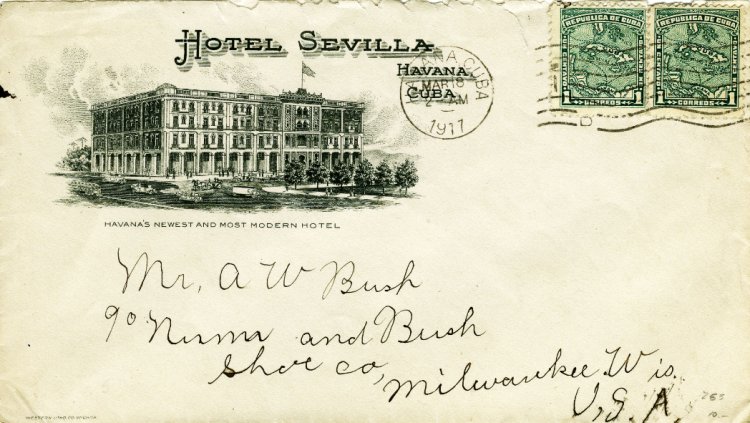 HOTEL SEVILLA
HAVANA,
CUBA.
HAVANA CUBA
MAR
AM
1917
REPUBLICA DE CUBA
1 CORREOS 1
REPUBLICA DE CUBA
1 CORREOS 1
HAVANA'S NEWEST AND MOST MODERN HOTEL
Mr. A W Bush
% Nunn and Bush
Shoe co,
Milwaukee Wis.
U.S.A.
WESTERN LITHO. CO. WICHITA